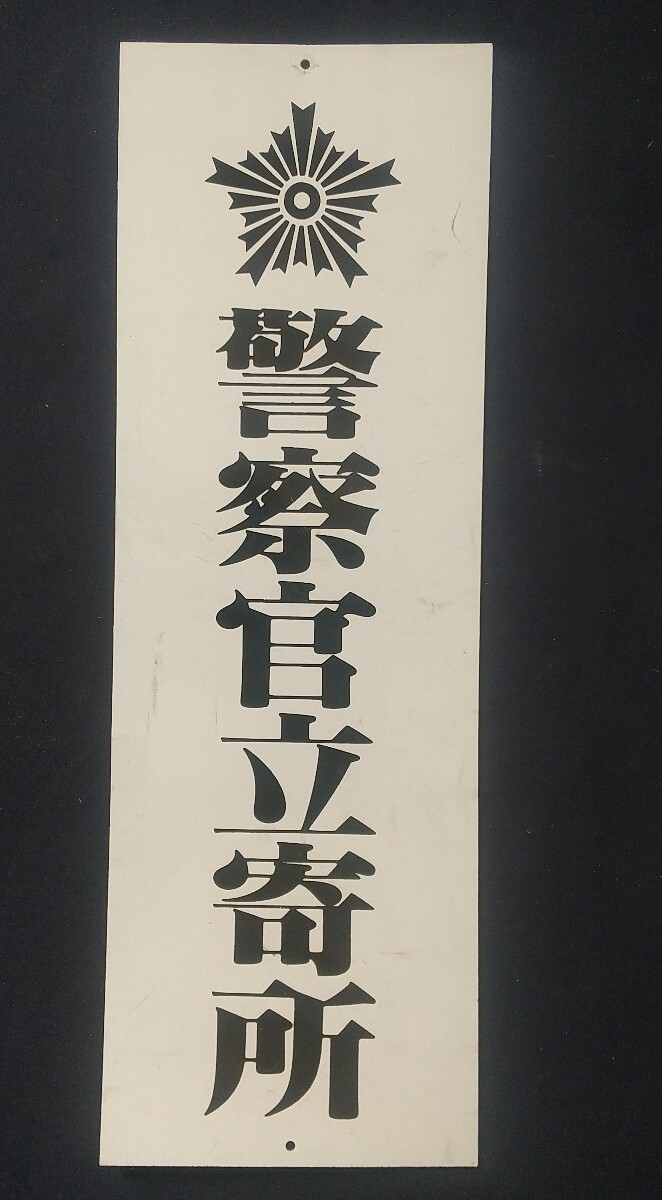 警察官立寄所